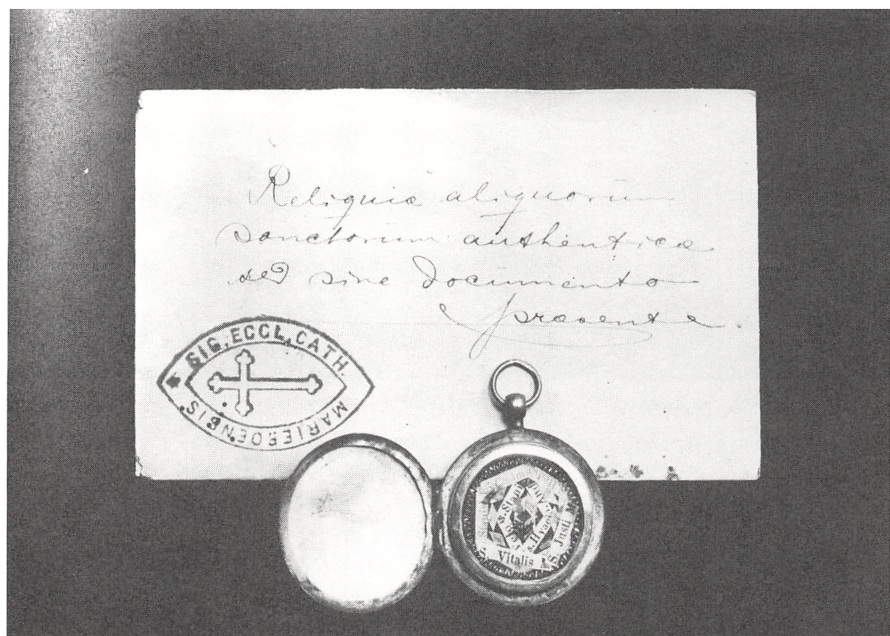 Reliquiæ aliquorum
sanctorum authenticæ
sed sine documento
præsente.
* SIG. ECCL. CATH.
MARIEROENSIS.
Vitalis
S. Justi M.